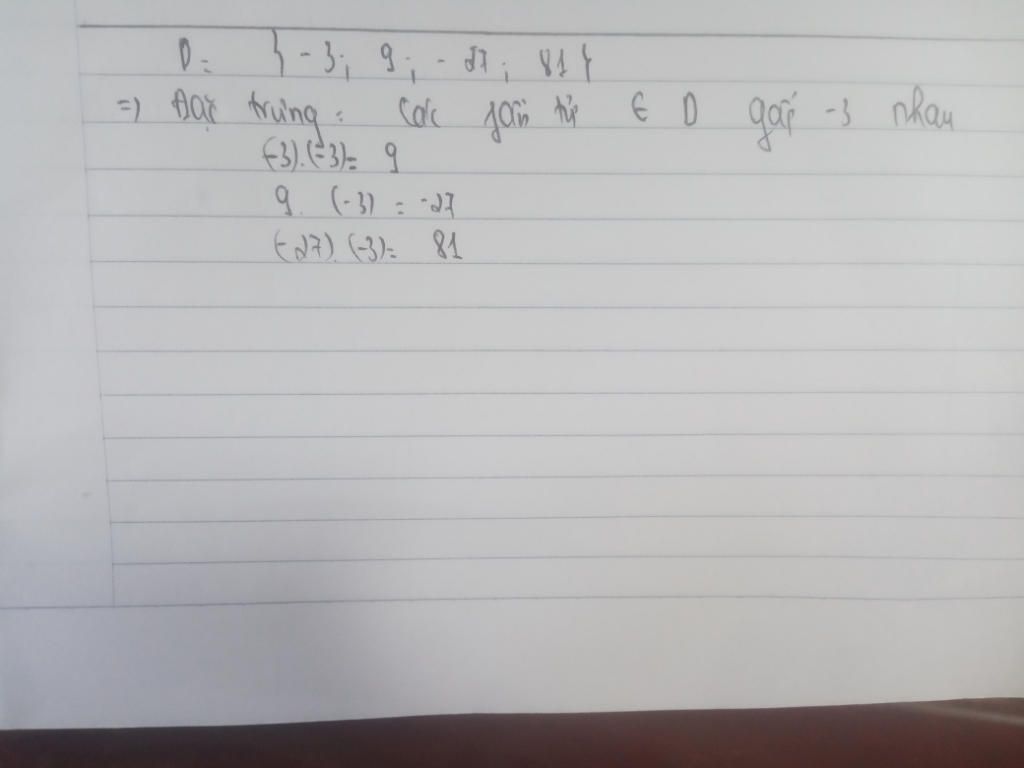 D = { -3; 9; -27; 81 }
=> Đặc trưng: Các phần tử ∈ D gấp -3 nhau
(-3).(-3)= 9
9. (-3) = -27
(-27).(-3)= 81